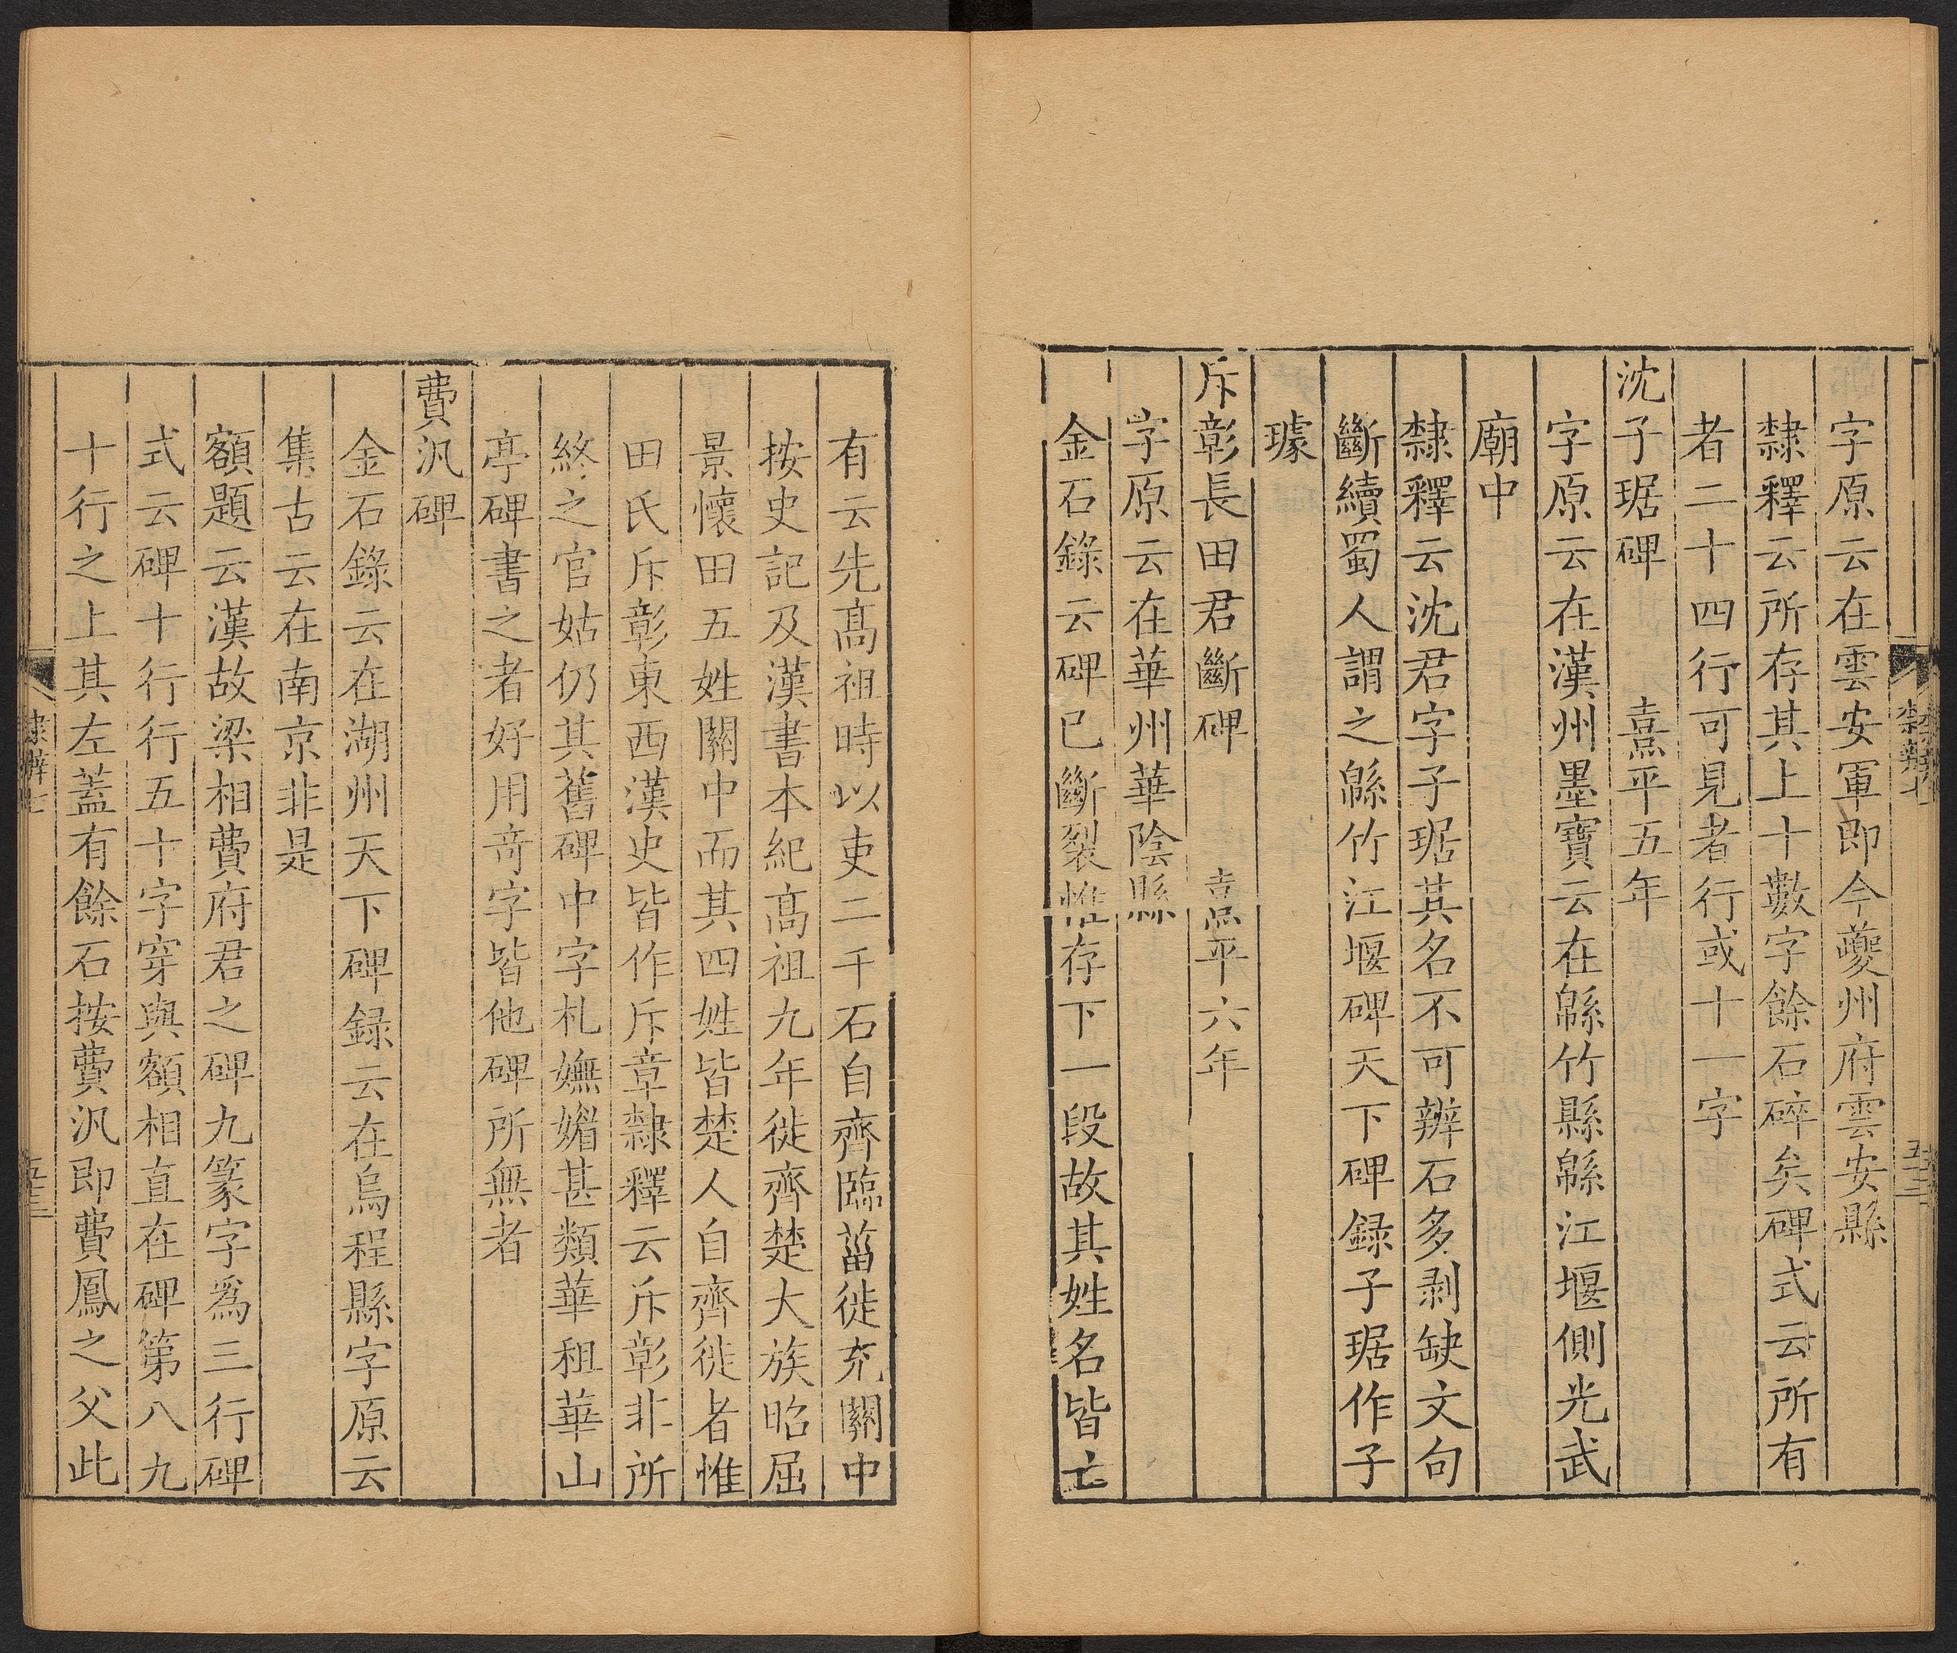 字原云在雲安軍即今夔州府雲安縣
隸釋云所存其上十數字餘石碎矣碑式云所有
者二十四行可見者行或十一字
沈子琚碑 熹平五年
字原云在漢州墨寶云在緜竹縣緜江堰側光武
廟中
隸釋云沈君字子琚其名不可辨石多剥缺文句
斷續蜀人謂之緜竹江堰碑天下碑録子琚作子
璩
斥彰長田君斷碑 熹平六年
字原云在華州華陰縣
金石錄云碑已斷裂惟存下一段故其姓名皆亡
有云先髙祖時以吏二千石自齊臨菑徙充關中
按史記及漢書本紀髙祖九年徙齊楚大族昭屈
景懷田五姓關中而其四姓皆楚人自齊徙者惟
田氏斥彰東西漢史皆作斥章隸釋云斥彰非所
終之官姑仍其舊碑中字札嫵媚甚類華租華山
亭碑書之者好用竒字皆他碑所無者
費汎碑
金石錄云在湖州天下碑録云在烏程縣字原云
集古云在南京非是
額題云漢故梁相費府君之碑九篆字爲三行碑
式云碑十行行五十字穿與額相直在碑第八九
十行之上其左蓋有餘石按費汎即費鳳之父此
隸辨七
五十三